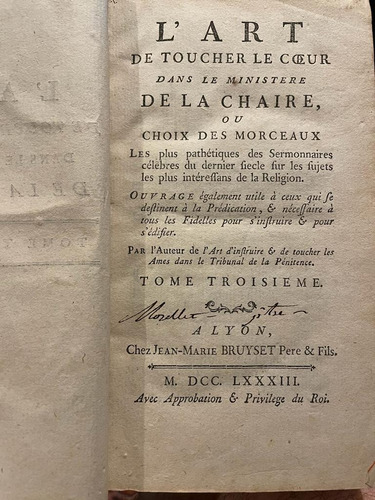 L'ART
DE TOUCHER LE CŒUR
DANS LE MINISTERE
DE LA CHAIRE,
OU
CHOIX DES MORCEAUX
LES plus pathétiques des Sermonnaires
célebres du dernier siecle sur les sujets
les plus intéressans de la Religion.
OUVRAGE également utile à ceux qui se
destinent à la Prédication, & nécessaire à
tous les Fidelles pour s'instruire & pour
s'édifier.
PAR l'Auteur de l'Art d'instruire & de toucher les
Ames dans le Tribunal de la Pénitence.
TOME TROISIEME.
A LYON,
Chez JEAN-MARIE BRUYSET Pere & Fils.
M. DCC. LXXXIII.
Avec Approbation & Privilege du Roi.